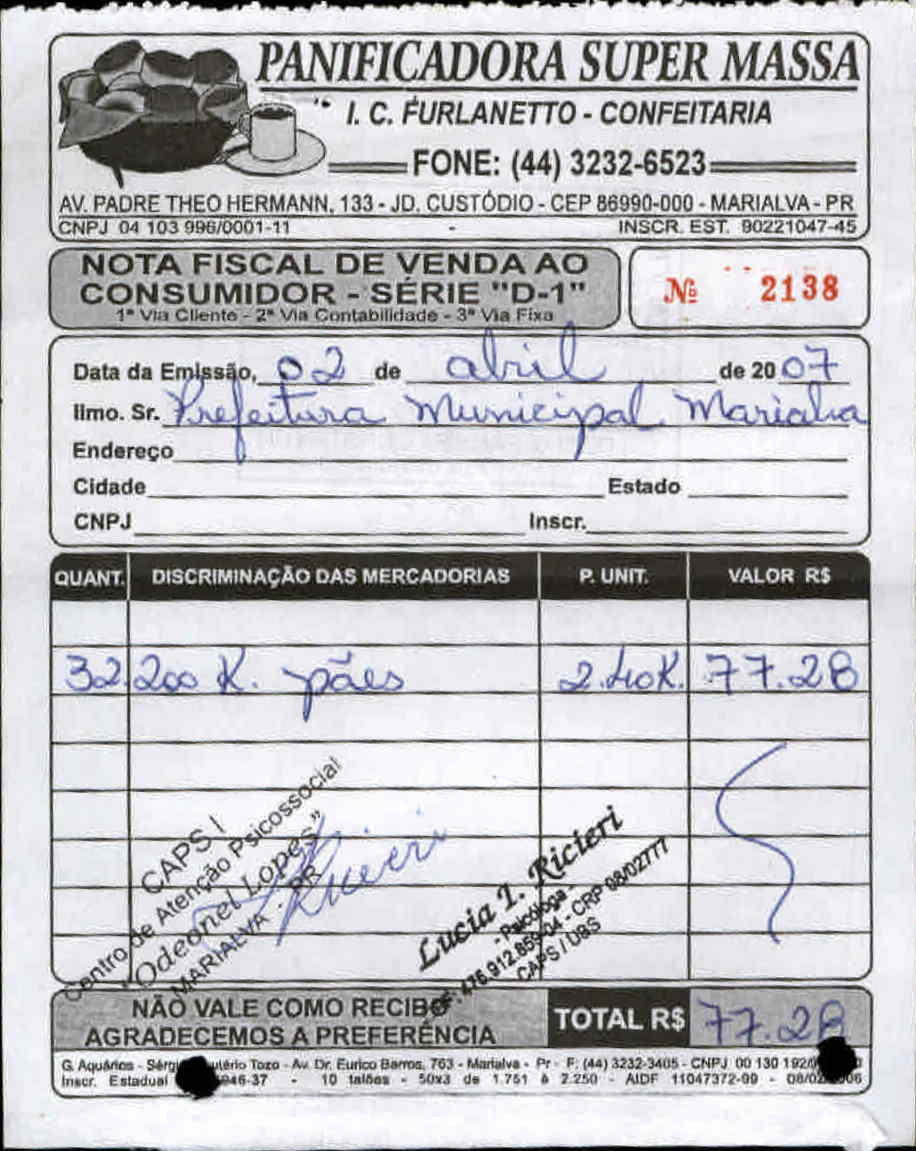 PANIFICADORA SUPER MASSA
I. C. FURLANETTO - CONFEITARIA
FONE: (44) 3232-6523
AV. PADRE THEO HERMANN, 133 - JD. CUSTÓDIO - CEP 86990-000 - MARIALVA - PR
CNPJ 04 103 996/0001-11 - INSCR. EST. 90221047-45
NOTA FISCAL DE VENDA AO
CONSUMIDOR - SÉRIE "D-1"
1ª Via Cliente - 2ª Via Contabilidade - 3ª Via Fixa
Nº 2138
Data da Emissão, 02 de abril de 2007
Ilmo. Sr. Prefeitura Municipal Marialva
Endereço
Cidade Estado
CNPJ Inscr.
QUANT. DISCRIMINAÇÃO DAS MERCADORIAS P. UNIT. VALOR R$
32 200 K. pães 2.40K. 77.28
CAPS I
Centro de Atenção Psicossocial
"Odeonel Lopes"
MARIALVA - PR
Ricieri
Lucia I. Ricieri
- Psicóloga -
CRP 08/02777
CAPS I / UBS
NÃO VALE COMO RECIBO
AGRADECEMOS A PREFERÊNCIA
TOTAL R$ 77.28
G. Aquários - Tozo - Av. Dr. Eurico Barros, 763 - Marialva - Pr - F: (44) 3232-3405 - CNPJ 00 130
Inscr. Estadual 46-37 - 10 talões - 50x3 de 1.751 à 2.250 - AIDF 11047372-99 -